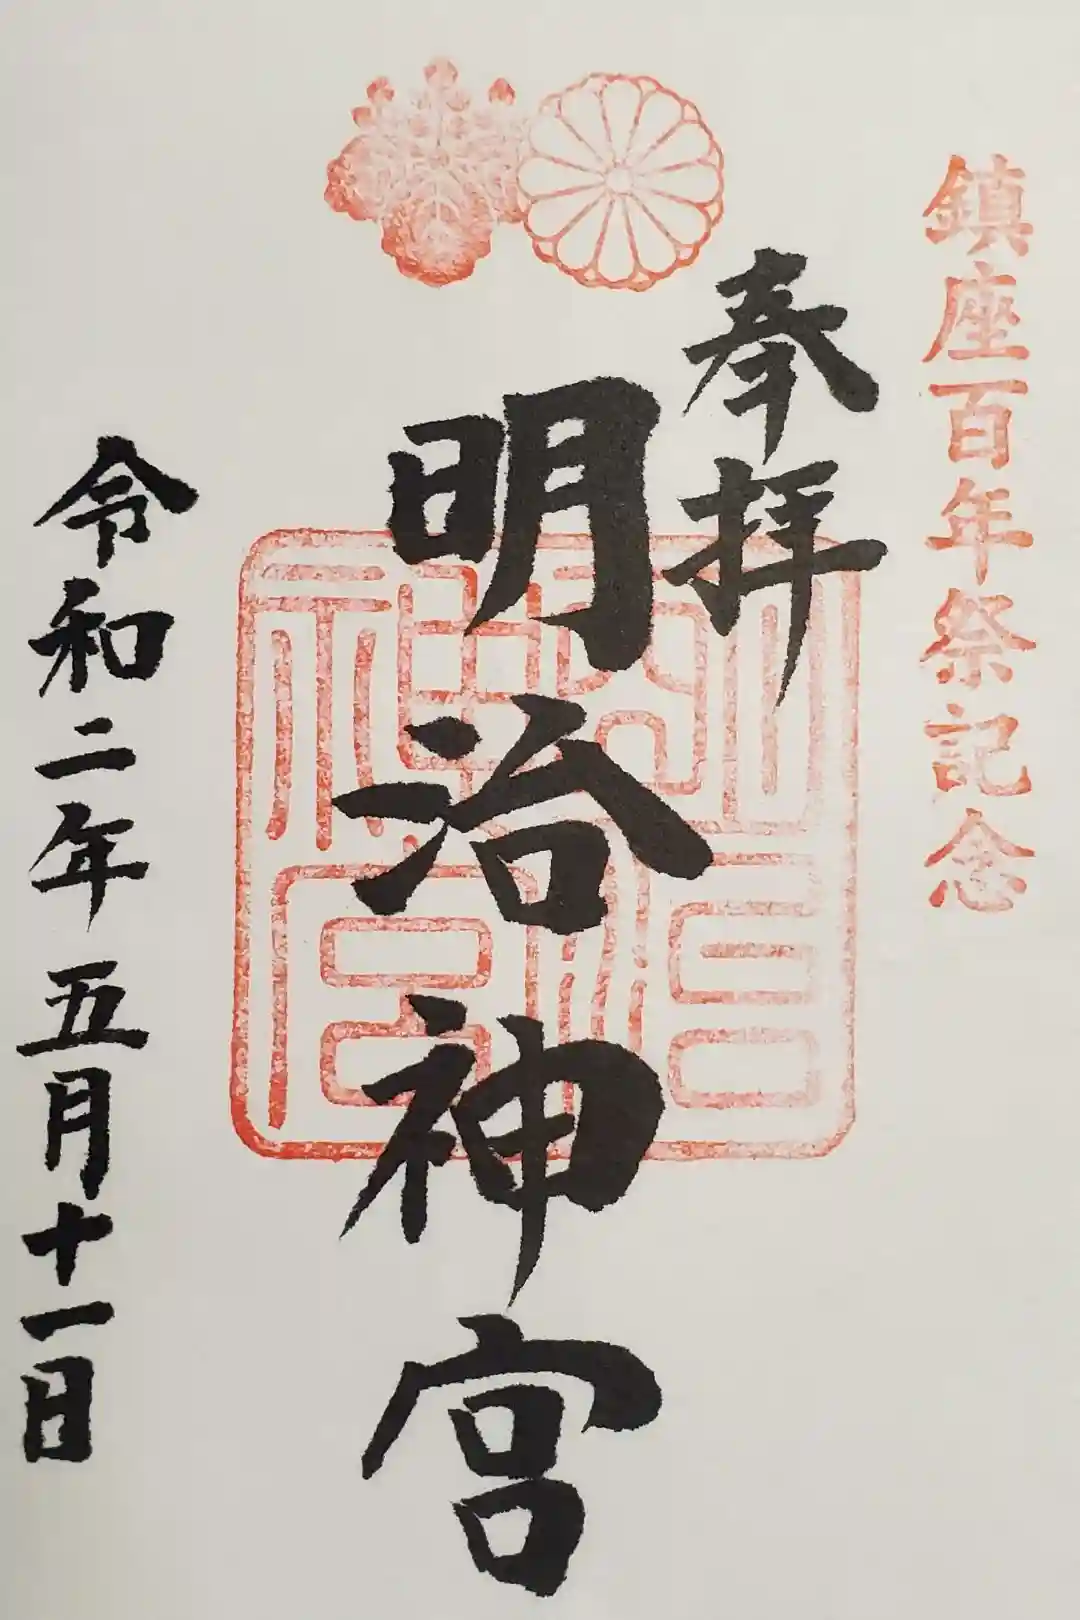 鎮座百年祭記念
奉拝
明治神宮
令和二年五月十一日
明治神宮